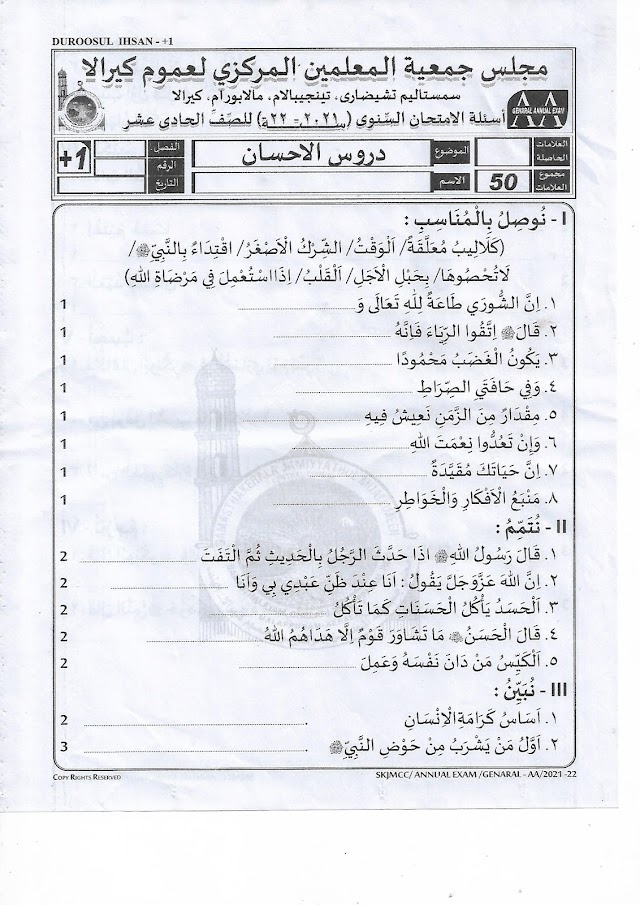 DUROOSUL IHSAN - +1
مجلس جمعية المعلمين المركزي لعموم كيرالا
سمستاليم تشيضاري، تينجيبالام، مالابورام، كيرالا
أسئلة الامتحان السّنوي (٢٠٢١-٢٢م) للصّف الحادي عشر
AA
GENERAL ANNUAL EXAM
العلامات الحاصلة
الموضوع
دروس الاحسان
الفصل
+1
الرقم
مجموع العلامات
50
الاسم
التاريخ
I - نُوصِلُ بِالْمُنَاسِبِ :
(كَلَالِيبُ مُعَلَّقَةٌ/ اَلْوَقْتُ/ الشِّرْكُ الْاَصْغَرُ/ اقْتِدَاءٌ بِالنَّبِيِّ ﷺ/
لَاتُحْصُوهَا/ بِحَبْلِ الْاَجَلِ/ اَلْقَلْبُ/ اِذَا اسْتُعْمِلَ فِي مَرْضَاةِ اللهِ)
١. اِنَّ الشُّورَي طَاعَةٌ لِلّٰهِ تَعَالَى وَ ____________ 1
٢. قَالَ ﷺ اِتَّقُوا الرِّيَاءَ فَاِنَّهُ ____________ 1
٣. يَكُونُ الْغَضَبُ مَحْمُودًا ____________ 1
٤. وَفِي حَافَتَيِ الصِّرَاطِ ____________ 1
٥. مِقْدَارٌ مِنَ الزَّمَنِ نَعِيشُ فِيهِ ____________ 1
٦. وَاِنْ تَعُدُّوا نِعْمَتَ اللهِ ____________ 1
٧. اِنَّ حَيَاتَكَ مُقَيَّدَةٌ ____________ 1
٨. مَنْبَعُ الْاَفْكَارِ وَالْخَوَاطِرِ ____________ 1
II - نُتَمِّمُ :
١. قَالَ رَسُولُ اللهِ ﷺ اِذَا حَدَّثَ الرَّجُلُ بِالْحَدِيثِ ثُمَّ الْتَفَتَ ____________ 2
٢. اِنَّ اللهَ عَزَّوَجَلَّ يَقُولُ : اَنَا عِنْدَ ظَنِّ عَبْدِي بِي وَاَنَا ____________ 2
٣. اَلْحَسَدُ يَأْكُلُ الْحَسَنَاتِ كَمَا تَأْكُلُ ____________ 2
٤. قَالَ الْحَسَنُ مَا تَشَاوَرَ قَوْمٌ اِلَّا هَدَاهُمُ اللهُ ____________ 2
٥. اَلْكَيِّسُ مَنْ دَانَ نَفْسَهُ وَعَمِلَ ____________ 2
III - نُبَيِّنُ :
١. اَسَاسُ كَرَامَةِ الْاِنْسَانِ ____________. 2
٢. اَوَّلُ مَنْ يَشْرَبُ مِنْ حَوْضِ النَّبِيِّ ﷺ ____________. 3
COPY RIGHTS RESERVED
SKJMCC/ ANNUAL EXAM /GENARAL - AA/2021 -22